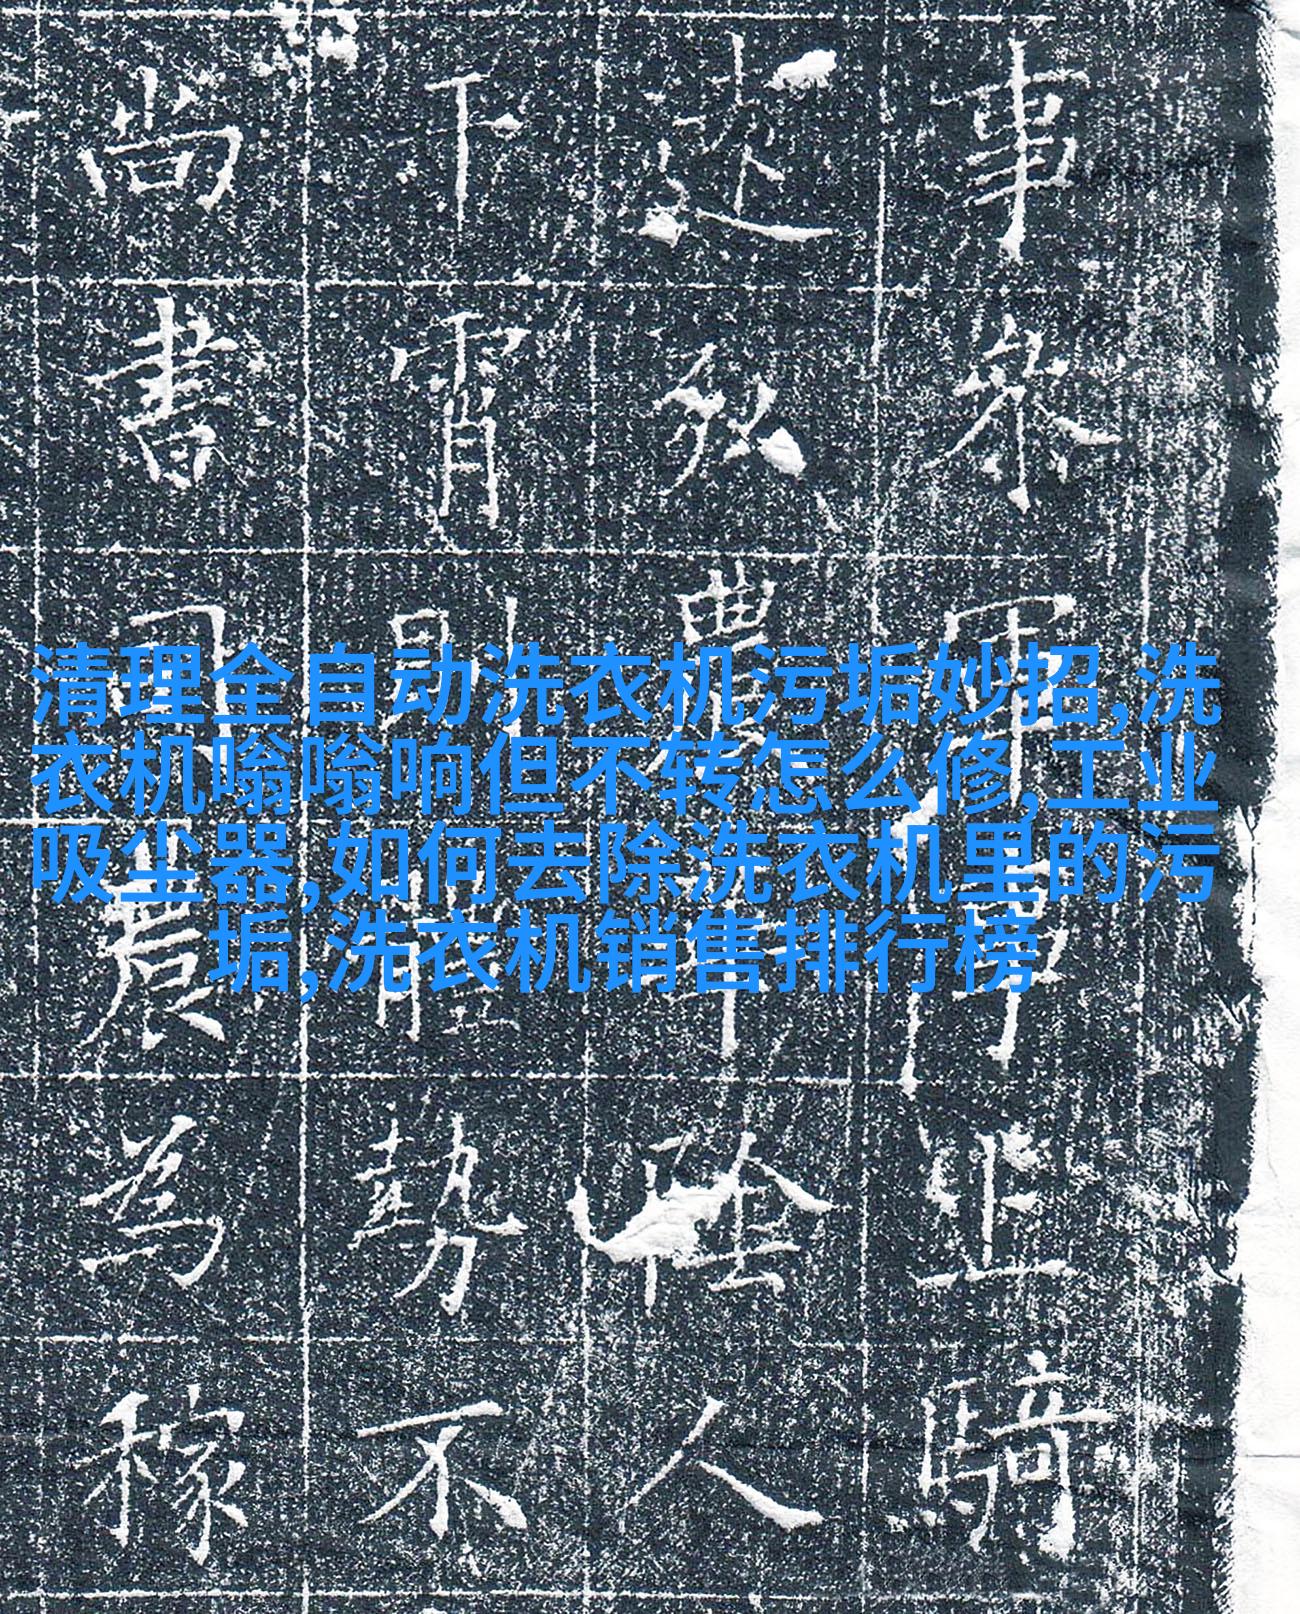 清理全自动洗衣机污垢妙招,洗
衣机嗡嗡响但不转怎么修,工业
吸尘器,如何去除洗衣机里的污
垢,洗衣机销售排行榜
事軍事騎
農陰人
下霄則體勢不
尚書司為稼